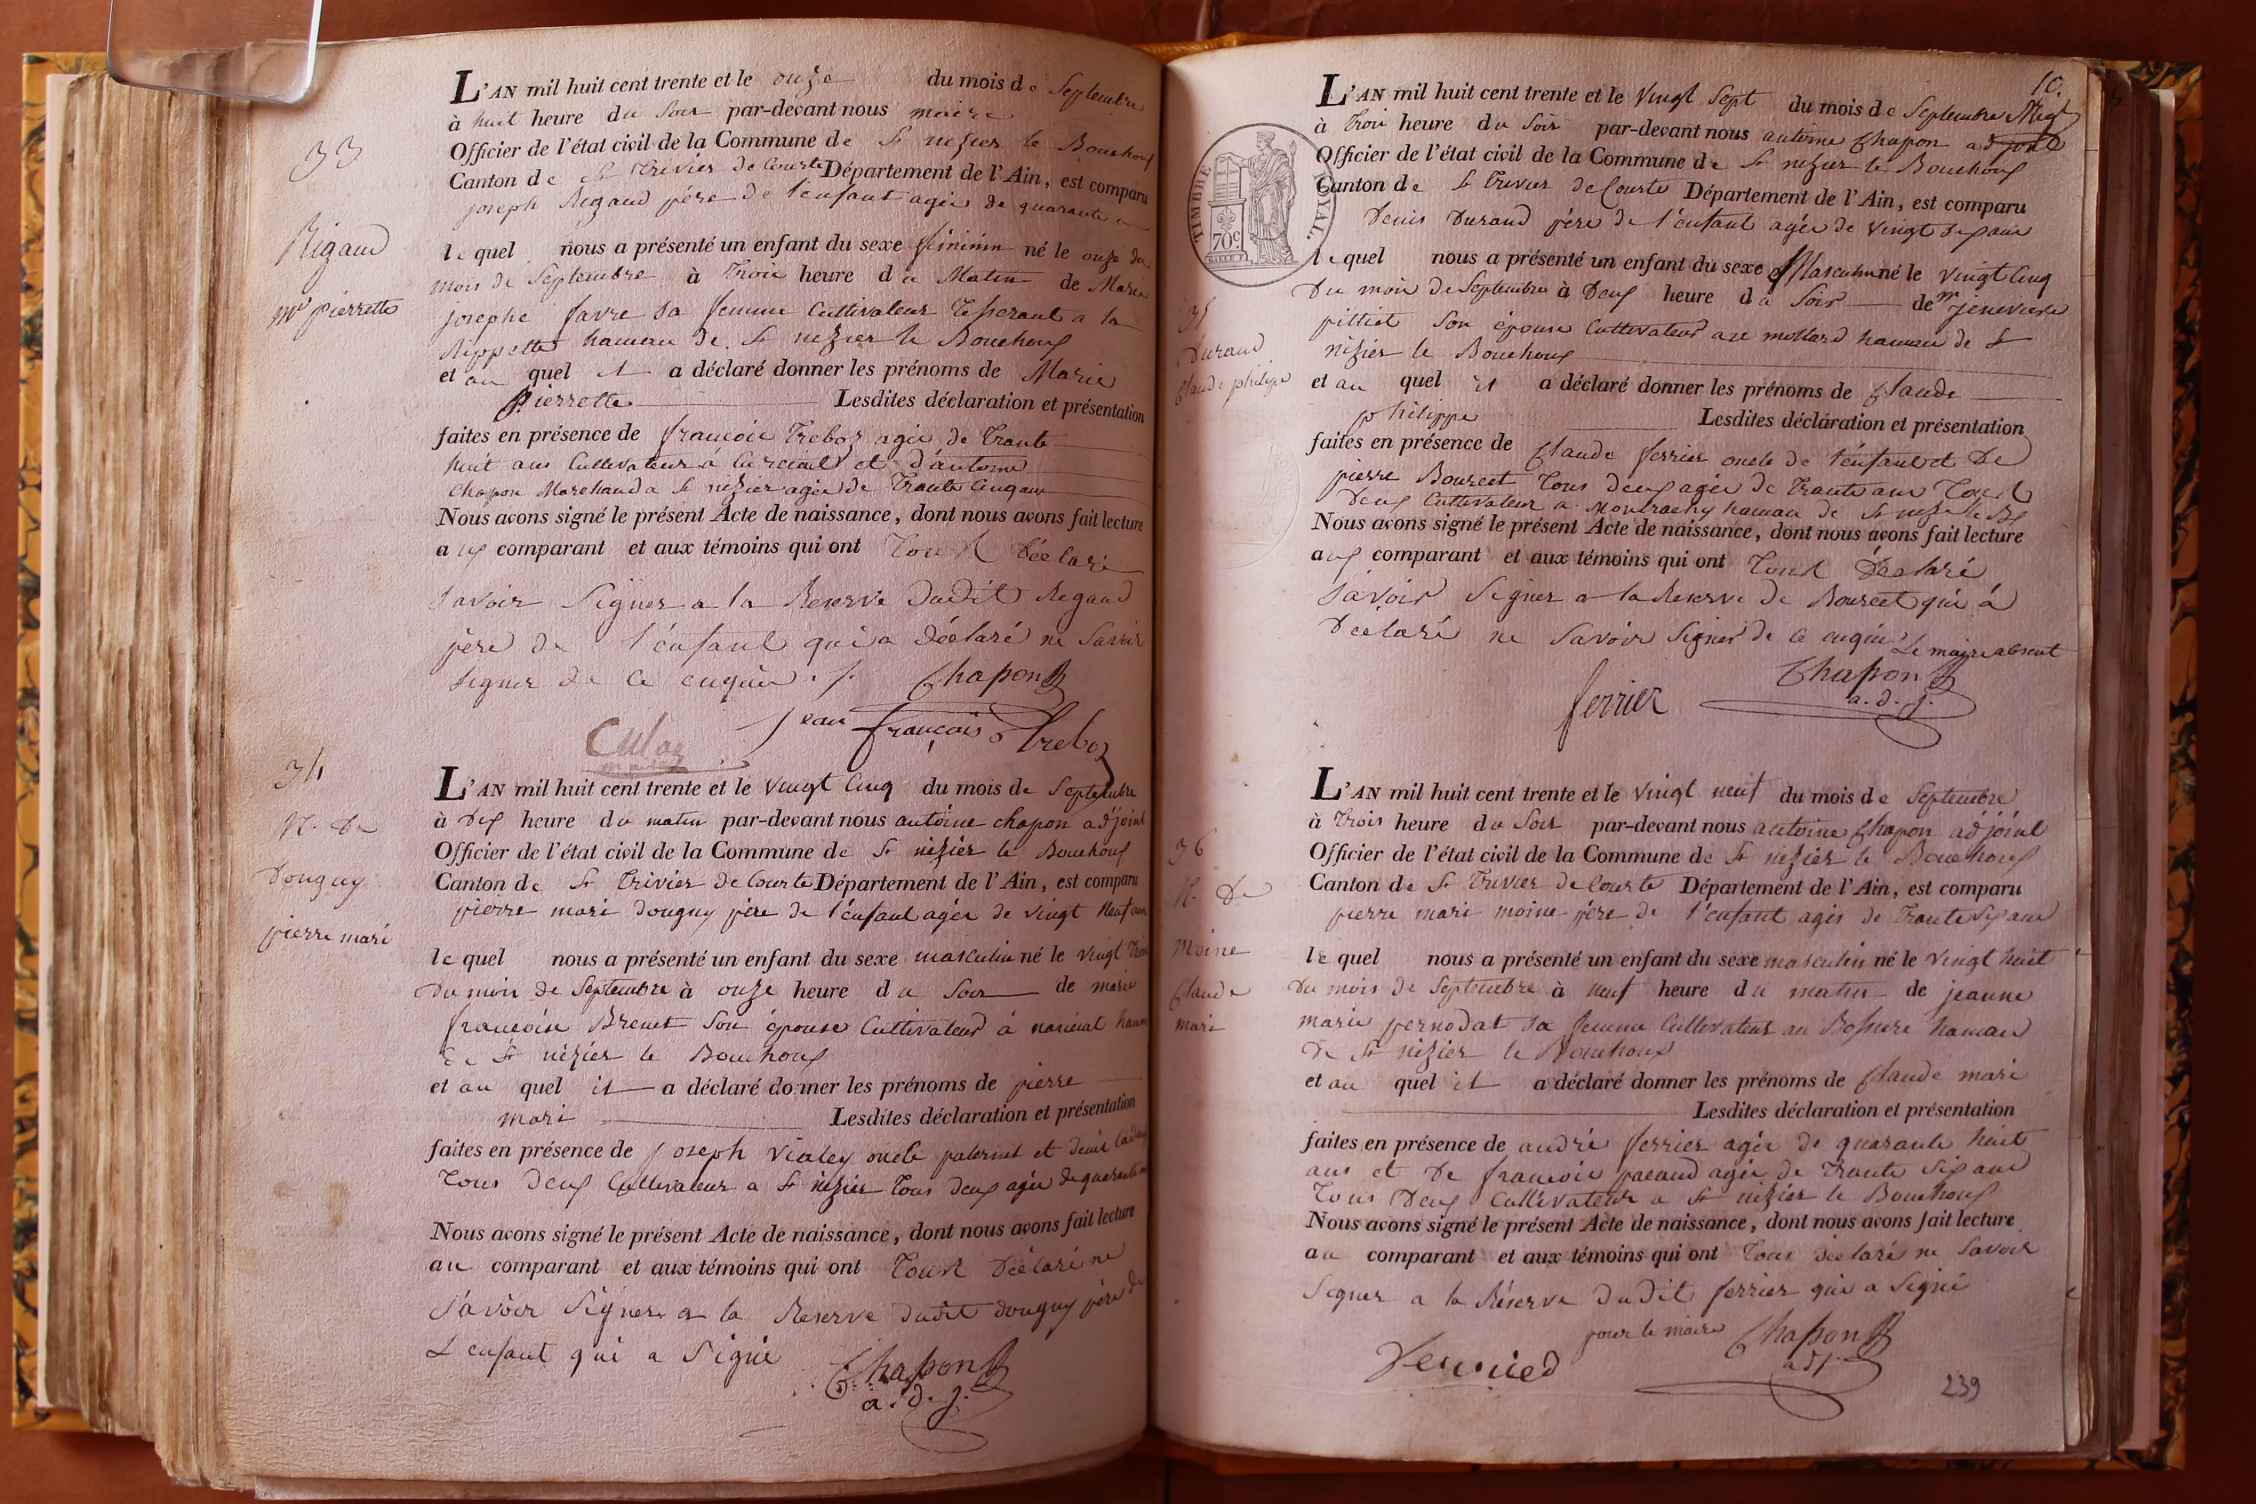 33
Rigaud
Mie pierrette
L'AN mil huit cent trente et le onze du mois de Septembre
à huit heure du Soir par-devant nous maire
Officier de l'état civil de la Commune de St nizier le Bouchoux
Canton de St Trivier de Courte Département de l'Ain, est comparu
joseph Rigaud père de l'enfant agée de quarante
le quel nous a présenté un enfant du sexe féminin né le onze du
mois de Septembre à trois heure du Matin de Marie
josephe favre sa femme Cultivateur a la
hameau de St nizier le Bouchoux
et au quel il a déclaré donner les prénoms de Marie
Pierrette Lesdites déclaration et présentation
faites en présence de francois Treboz agée de Trante
huit ans Cultivateur à Curciat et d'antoine
Chapon Marchand a St nizier agée de Trante Cinq ans
Nous avons signé le présent Acte de naissance, dont nous avons fait lecture
aux comparant et aux témoins qui ont Tous déclaré
savoir Signer a la Reserve dudit Regaud
père de l'enfant qui a déclaré ne Savoir
signer de ce enquis ./.
Chapon
jean françois Treboz
34
N. De
Douguy
pierre mari
L'AN mil huit cent trente et le Vingt Cinq du mois de Septembre
à Dix heure du matin par-devant nous antoine chapon adjoint
Officier de l'état civil de la Commune de St nizier le Bouchoux
Canton de St Trivier de Courte Département de l'Ain, est comparu
pierre mari douguy père de l'enfant agée de vingt Neuf ans
le quel nous a présenté un enfant du sexe masculin né le vingt Trois
Du mois de Septembre à onze heure du Soir de marie
francoise Brenet Son épouse Cultivateur à
de St nizier le Bouchoux
et au quel il a déclaré donner les prénoms de pierre
mari Lesdites déclaration et présentation
faites en présence de joseph Vialey oncle paternel et denis
Tous deux Cultivateur a St nizier Tous deux agée de quarante
Nous avons signé le présent Acte de naissance, dont nous avons fait lecture
au comparant et aux témoins qui ont Tous Déclaré ne
savoir Signer a la Reserve dudit douguy père de
L'enfant qui a Signé
Chapon
a.d.j.
10.
TIMBRE ROYAL.
70c
35
Durand
Claude philippe
L'AN mil huit cent trente et le Vingt Sept du mois de Septembre
à Trois heure du Soir par-devant nous antoine Chapon adjoint
Officier de l'état civil de la Commune de St nizier le Bouchoux
Canton de St Trivier de Courte Département de l'Ain, est comparu
Denis Durand père de l'enfant agée de vingt Six ans
le quel nous a présenté un enfant du sexe Masculin né le vingt Cinq
Du mois de Septembre à Deux heure du Soir de Mie jenevieve
pittiet Son épouse Cultivateur au mollard hameau de St
nizier le Bouchoux
et au quel il a déclaré donner les prénoms de Claude
philippe Lesdites déclaration et présentation
faites en présence de Claude ferrier oncle de l'enfant et De
pierre Bourcet Tous deux agée de Trante ans Tous
Deux Cultivateur a hameau de St nizier le Bx
Nous avons signé le présent Acte de naissance, dont nous avons fait lecture
aux comparant et aux témoins qui ont Tous Déclaré
savoir Signer a la Reserve de Bourcet qui à
Déclaré ne Savoir Signer de ce enquis Le maire absent
ferrier Chapon
a.d.j.
36
N. De
Moine
Claude
mari
L'AN mil huit cent trente et le Vingt neuf du mois de Septembre
à Trois heure du Soir par-devant nous antoine Chapon adjoint
Officier de l'état civil de la Commune de St nizier le Bouchoux
Canton de St Trivier de Courte Département de l'Ain, est comparu
pierre mari moine père de l'enfant agés de Trante Six ans
le quel nous a présenté un enfant du sexe masculin né le Vingt huit
Du mois de Septembre à neuf heure du matin de jeanne
marie pernodat sa femme Cultivateur au hameau
De St nizier le Bouchoux
et au quel il a déclaré donner les prénoms de Claude mari
Lesdites déclaration et présentation
faites en présence de andré ferrier agée de quarante huit
ans et De francois pacaud agée de Trante Six ans
Tous Deux Cultivateur a St nizier le Bouchoux
Nous avons signé le présent Acte de naissance, dont nous avons fait lecture
au comparant et aux témoins qui ont Tous déclaré ne Savoir
Signer a la Réserve Dudit ferrier qui a Signé
pour le maire Chapon
adj.
239